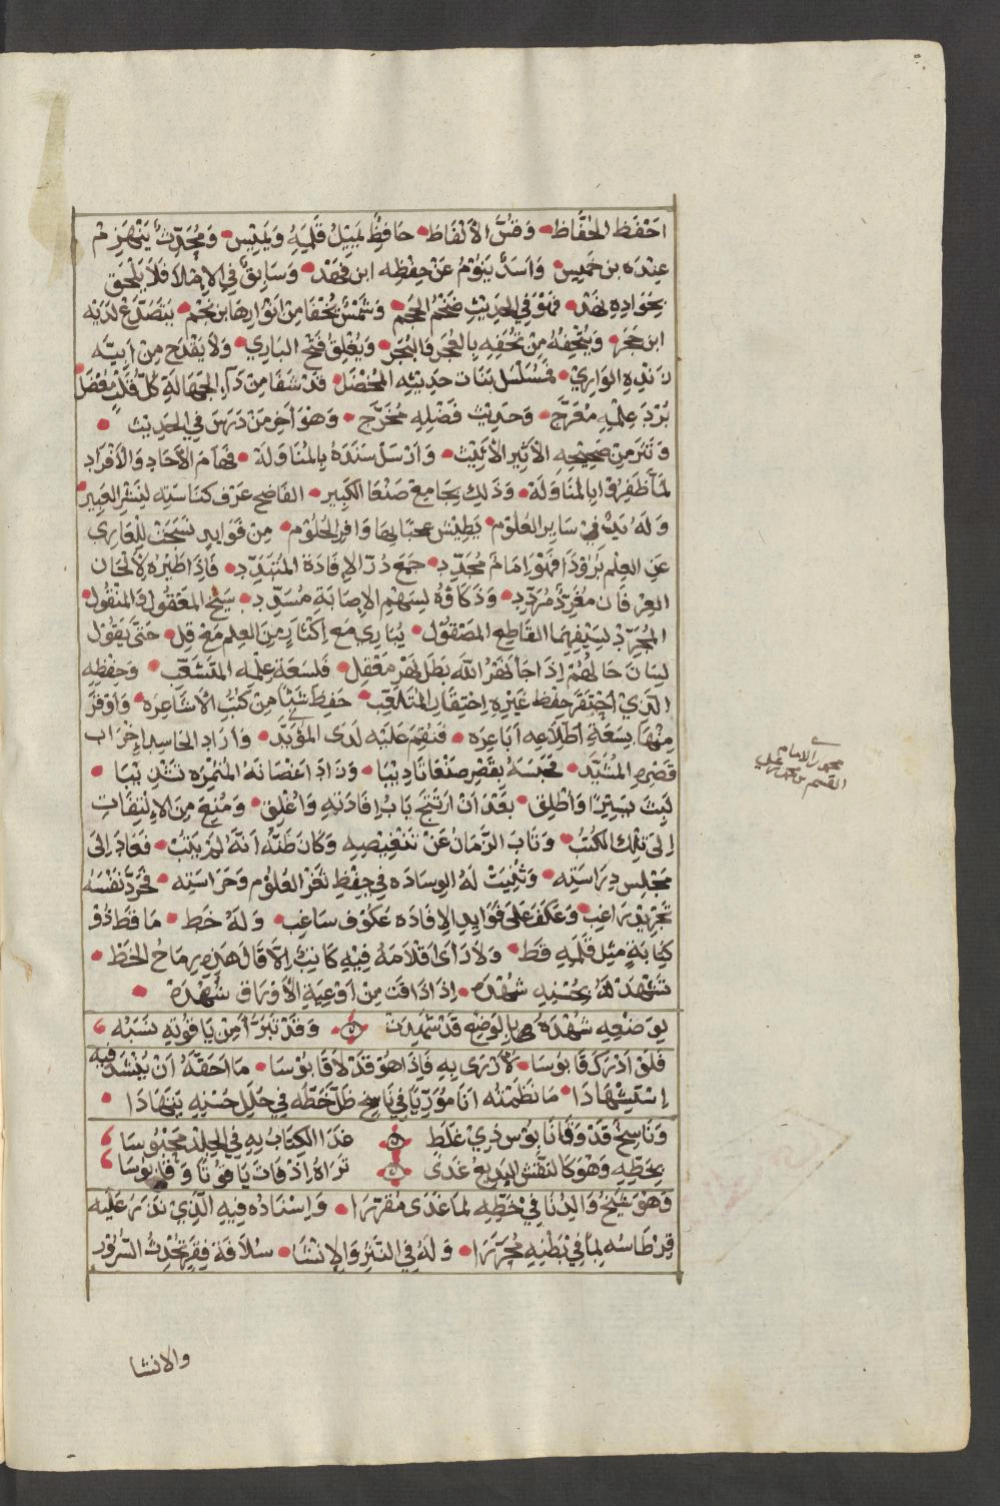 احفظ الحفاظ • وقس الألفاظ • حافظ يميل قلمه ويميس • ومحدث ينهزم
عنده بن خميس • واسد ينوم عن حفظه ابن فهد • وسابق في الاملا فلا يلحق
بجواده نهد • فهو في الحديث ضخم الحجم • وشمس يخفا من انوارها بن نجم • يتصدع لديه
ابن حجر • ويتحفه من تحفه بالعجر والبجر • ويغلق فتح الباري • ولا يقدح من ابيه
زنده الواري • فمسلسل بنات حديثه المخضل • قد شفا من داء الجهالة كل قلب معضل
برد علمه مفرج • وحديث فضله مخرج • وهو آخر من درس في الحديث •
ونثر من صحيحه الأثير الأثيث • وارسل سنده بالمناولة • فهام الآحاد والأفراد
لما ظفروا بالمناوله • وذلك بجامع صنعا الكبير • الفاضح عرف كناسته لنشر العبير •
وله يد في ساير العلوم • يطيش عجبا بها وافر الحلوم • من فوايد نسجت للعاري
عن العلم برودا فهو امام مجدد • جمع درر الإفادة المتبدد • فإذا طيره لألحان
العرفان مغرد مردد • وذكاؤه لسهم الإصابة مسدد • شيخ المعقول والمنقول •
المجرد لسيفهما القاطع المصقول • يباري مع اكثار من العلم مع قل • حتى يقول
لسان حالهم إذا جا نهر الله بطل نهر معقل • فلسعة علمه المتشعب • وحفظه
الذي احتقر حفظ غيره احتقار المتلعب • حفظ شيئا من كتب الأشاعره • واوقر
منها بسعة اطلاعه اباعره • فنقم عليه لدى المؤيد • واراد الحاسد إخراب
قصره المشيد • فحبسه بقصر صنعا تاديبا • وزاد اغصانه المثمرة تشذيبا •
لبث يسيرا واطلق • بعد ان ارتتج باب افادته واغلق • ومنع من الإلتفات
الى تلك الكتب • وتاب الزمان عن تنغيصه وكان ظنه انه لم يتب • فعاد الى
مجلس دراسته • وثنيت له الوساده في حفظ ثغر العلوم وحراسته • فجرد نفسه
تجريد راغب • وعكف على فوايد الإفاده عكوف ساغب • وله خط • ما قط ذو
كتابة مثل قلمه قط • ولا رأى اقلامه فيه كاتب إلا قال هذه رماح الخط •
تشهد له بحسنه شهده • إذا ذاقت من اوعية الأوراق شهده •
بوضعه شهده بالوضع قد شهدت ۞ وقد تبرأ من ياقوته نسبه
فلو ادرك قابوسا • لأزرى به فإذا هو قد لاقا بؤسا • ما احقه أن ينشد فيه
إستشهادا • ما نظمته انا موريا في ناسخ ظل خطه في حلل حسنه يتهادا •
وناسخ قد وقانا بؤس ذي غلط ۞ غدا الكتاب به في الجلد محبوسا
بخطه وهو كالنقش البديع غدى ۞ تراه اذ فات ياقوتا وقابوسا
وهو شيخ والدنا في خطه لما غدى مقررا • وإسناده فيه الذي ندر عليه
قرطاسه لما في بطنه محررا • وله في النثر والإنشا • سلافة فقر تحدث السرور
محمد بن الامام
القسم بن محمد بن علي
والانشا